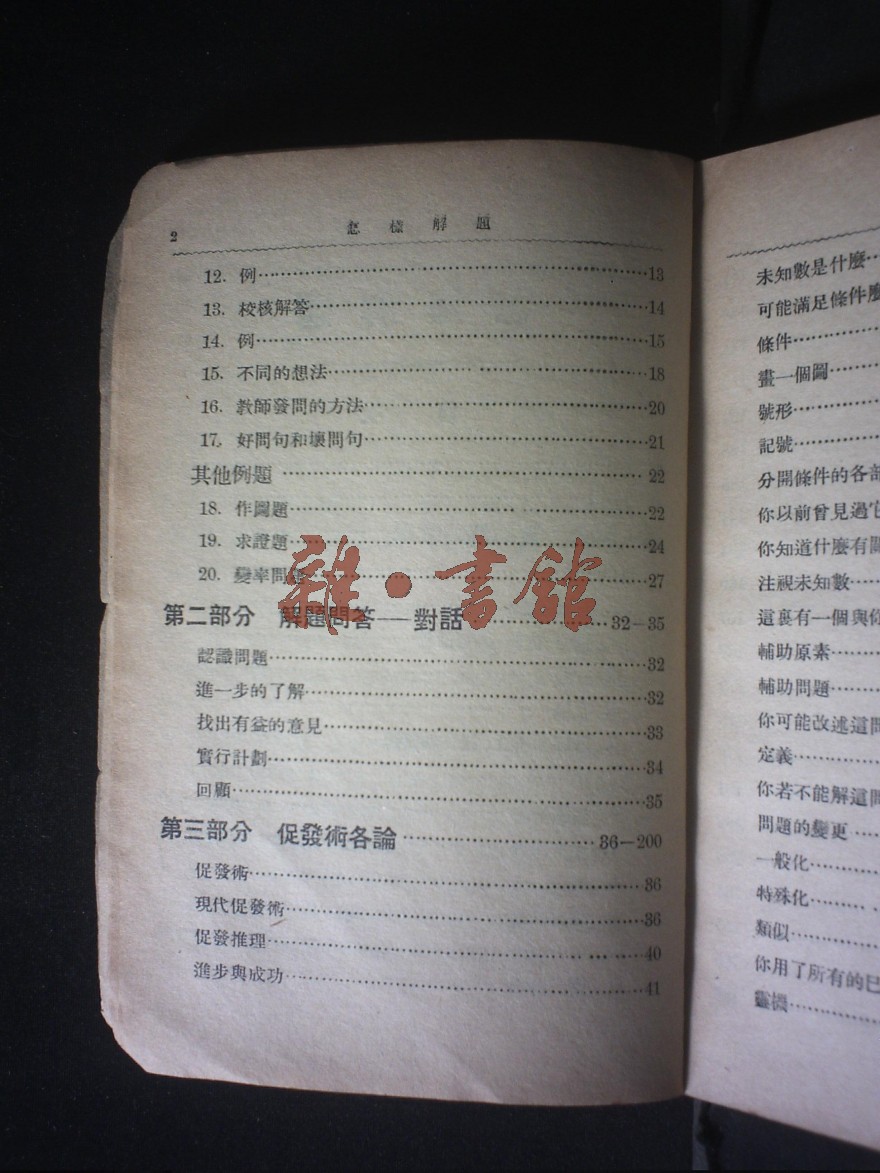 2
怎樣解題
12. 例……13
13. 校核解答……14
14. 例……15
15. 不同的想法……18
16. 教師發問的方法……20
17. 好問句和壞問句……21
其他例題……22
18. 作圖題……22
19. 求證題……24
20. 變率問題……27
第二部分 解題問答——對話……32—35
認識問題……32
進一步的了解……32
找出有益的意見……33
實行計劃……34
回顧……35
第三部分 促發術各論……36—200
促發術……36
現代促發術……36
促發推理……40
進步與成功……41
雜·書館
未知數是什麼…
可能滿足條件
條件……
畫一個圖……
號形……
記號……
分開條件的各部
你以前曾見過它
你知道什麼有關
注視未知數……
這裏有一個與你
輔助原素……
輔助問題……
你可能改述這問
定義……
你若不能解這問
問題的變更……
一般化……
特殊化……
類似……
你用了所有的已
靈機……